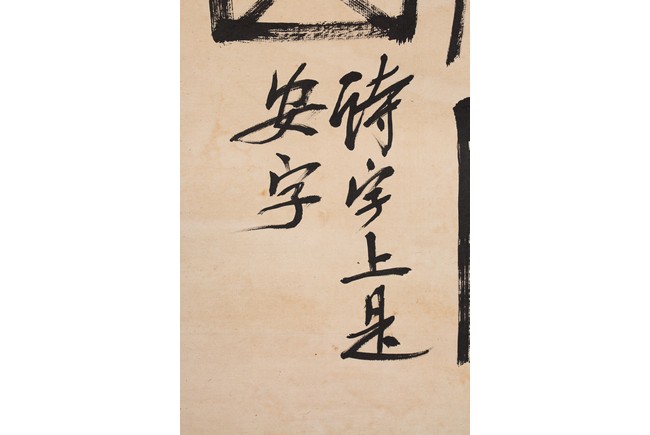 字上是
安字